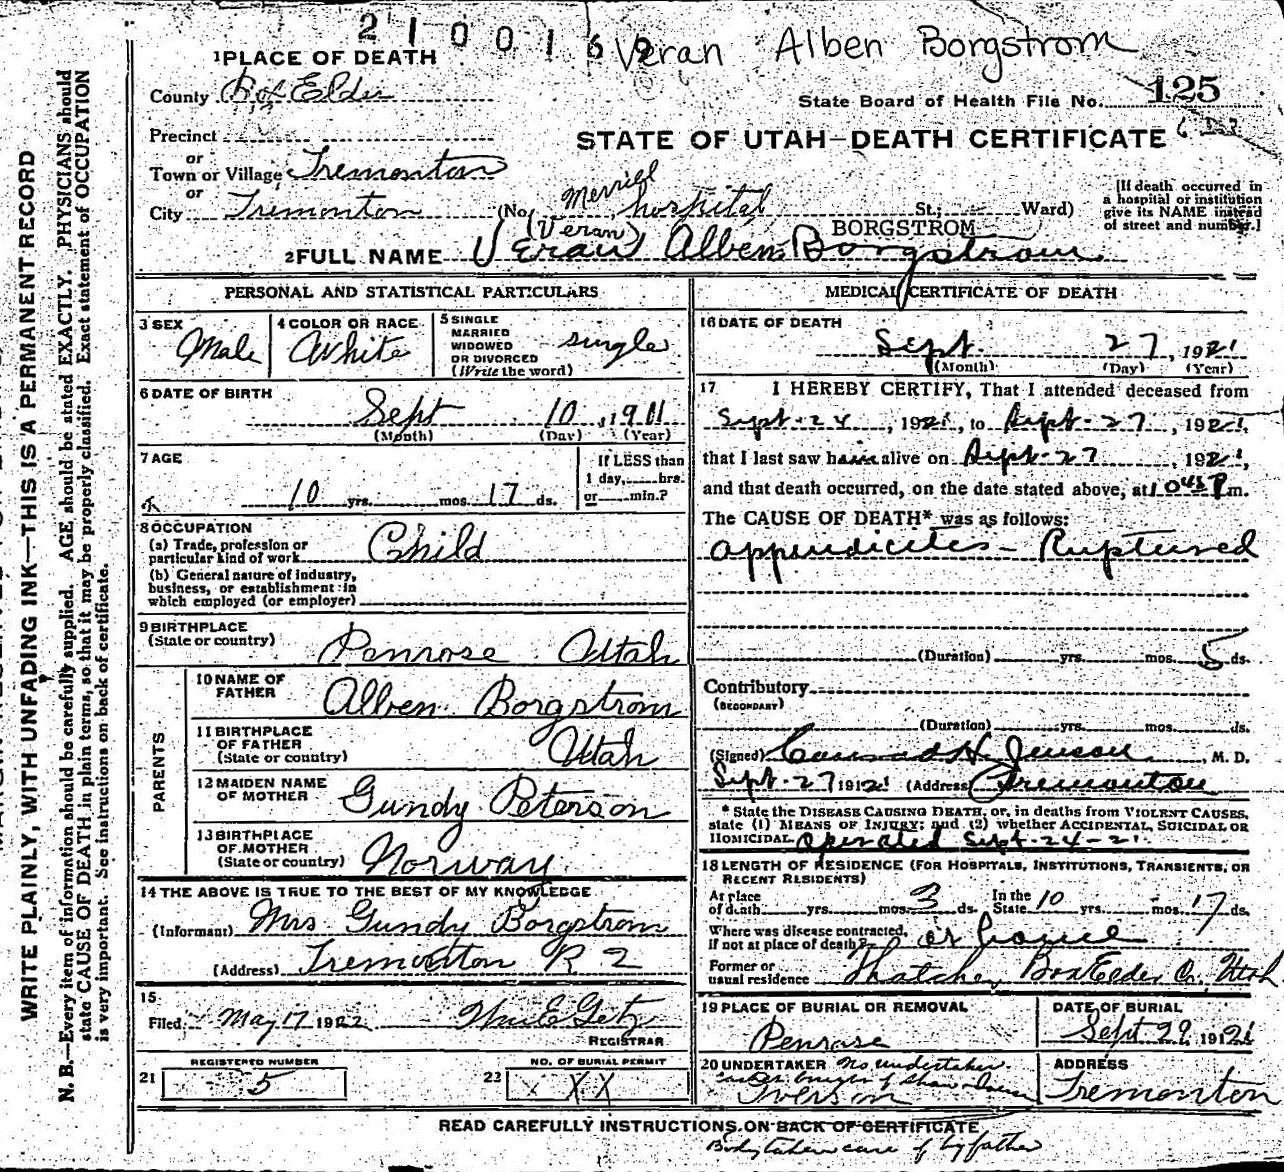 2 1 0 0 1 6 2
Veran Alben Borgstrom
1 PLACE OF DEATH
County Box Elder
State Board of Health File No. 125
Precinct
STATE OF UTAH—DEATH CERTIFICATE
or
Town or Village Tremonton
or
City Tremonton (No. Merrill hospital St.; Ward)
[If death occurred in
a hospital or institution
give its NAME instead
of street and number.]
(Veran) BORGSTROM
2 FULL NAME Veran Alben Borgstrom
PERSONAL AND STATISTICAL PARTICULARS
3 SEX
Male
4 COLOR OR RACE
White
5 SINGLE
MARRIED
WIDOWED
OR DIVORCED
(Write the word)
single
6 DATE OF BIRTH
Sept 10, 1911
(Month) (Day) (Year)
7 AGE
10 yrs. mos. 17 ds.
If LESS than
1 day, hrs.
or min.?
8 OCCUPATION
(a) Trade, profession or
particular kind of work Child
(b) General nature of industry,
business, or establishment in
which employed (or employer)
9 BIRTHPLACE
(State or country) Penrose Utah
PARENTS
10 NAME OF
FATHER Alben Borgstrom
11 BIRTHPLACE
OF FATHER
(State or country) Utah
12 MAIDEN NAME
OF MOTHER Gundy Peterson
13 BIRTHPLACE
OF MOTHER
(State or country) Norway
14 THE ABOVE IS TRUE TO THE BEST OF MY KNOWLEDGE
(Informant) Mrs Gundy Borgstrom
(Address) Tremonton R 2
15
Filed May 17 1922 Wm E Getz
REGISTRAR
REGISTERED NUMBER
21 5
NO. OF BURIAL PERMIT
22 X XX
MEDICAL CERTIFICATE OF DEATH
16 DATE OF DEATH
Sept. 27, 1921
(Month) (Day) (Year)
17 I HEREBY CERTIFY, That I attended deceased from
Sept-24, 1921, to Sept-27, 1921,
that I last saw him alive on Sept-27, 1921,
and that death occurred, on the date stated above, at 10 45 P m.
The CAUSE OF DEATH* was as follows:
appendicites - Ruptured
(Duration) yrs. mos. 5 ds.
Contributory
(SECONDARY)
(Duration) yrs. mos. ds.
(Signed) Conrad H. Jenson, M. D.
Sept-27 1921 (Address) Tremonton
* State the DISEASE CAUSING DEATH, or, in deaths from VIOLENT CAUSES,
state (1) MEANS OF INJURY; and (2) whether ACCIDENTAL, SUICIDAL OR
HOMICIDAL. operated Sept-24-21
18 LENGTH OF RESIDENCE (FOR HOSPITALS, INSTITUTIONS, TRANSIENTS, OR
RECENT RESIDENTS)
At place
of death yrs. mos. 3 ds. In the
State 10 yrs. mos. 17 ds.
Where was disease contracted,
if not at place of death? at home
Former or
usual residence Thatcher Box Elder Co, Utah
19 PLACE OF BURIAL OR REMOVAL
Penrose
DATE OF BURIAL
Sept 29 1921
20 UNDERTAKER No undertaker
Iverson
ADDRESS
Tremonton
READ CAREFULLY INSTRUCTIONS ON BACK OF CERTIFICATE
Body taken care of by father
WRITE PLAINLY, WITH UNFADING INK—THIS IS A PERMANENT RECORD
N. B.—Every item of information should be carefully supplied. AGE should be stated EXACTLY. PHYSICIANS should
state CAUSE OF DEATH in plain terms, so that it may be properly classified. Exact statement of OCCUPATION
is very important. See instructions on back of certificate.